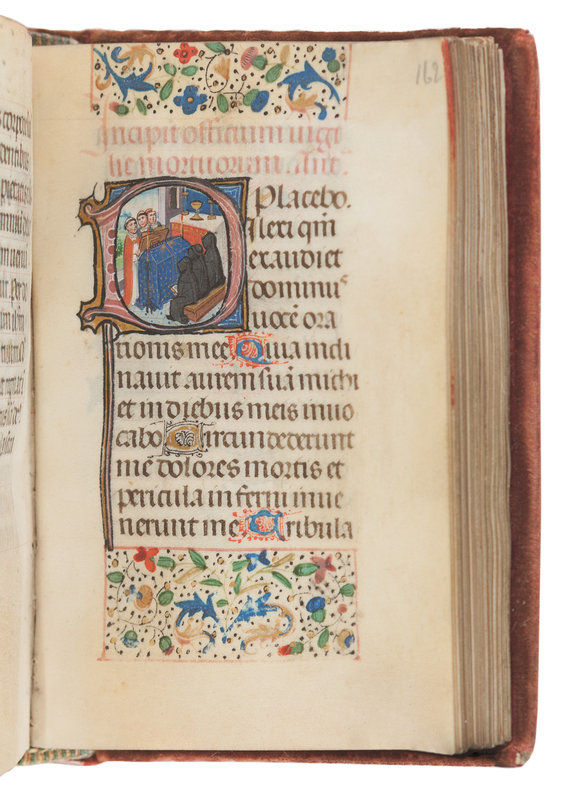 162
Incipit officium uigi
lie mortuorum. Ant.
Placebo.
Dilexi qm̄
exaudiet
dominuˢ
uocē ora
tionis mee Quia incli
nauit aurem suā michi
et in diebus meis inuo
cabo Circundederunt
me dolores mortis et
pericula inferni inue
nerunt me Tribula